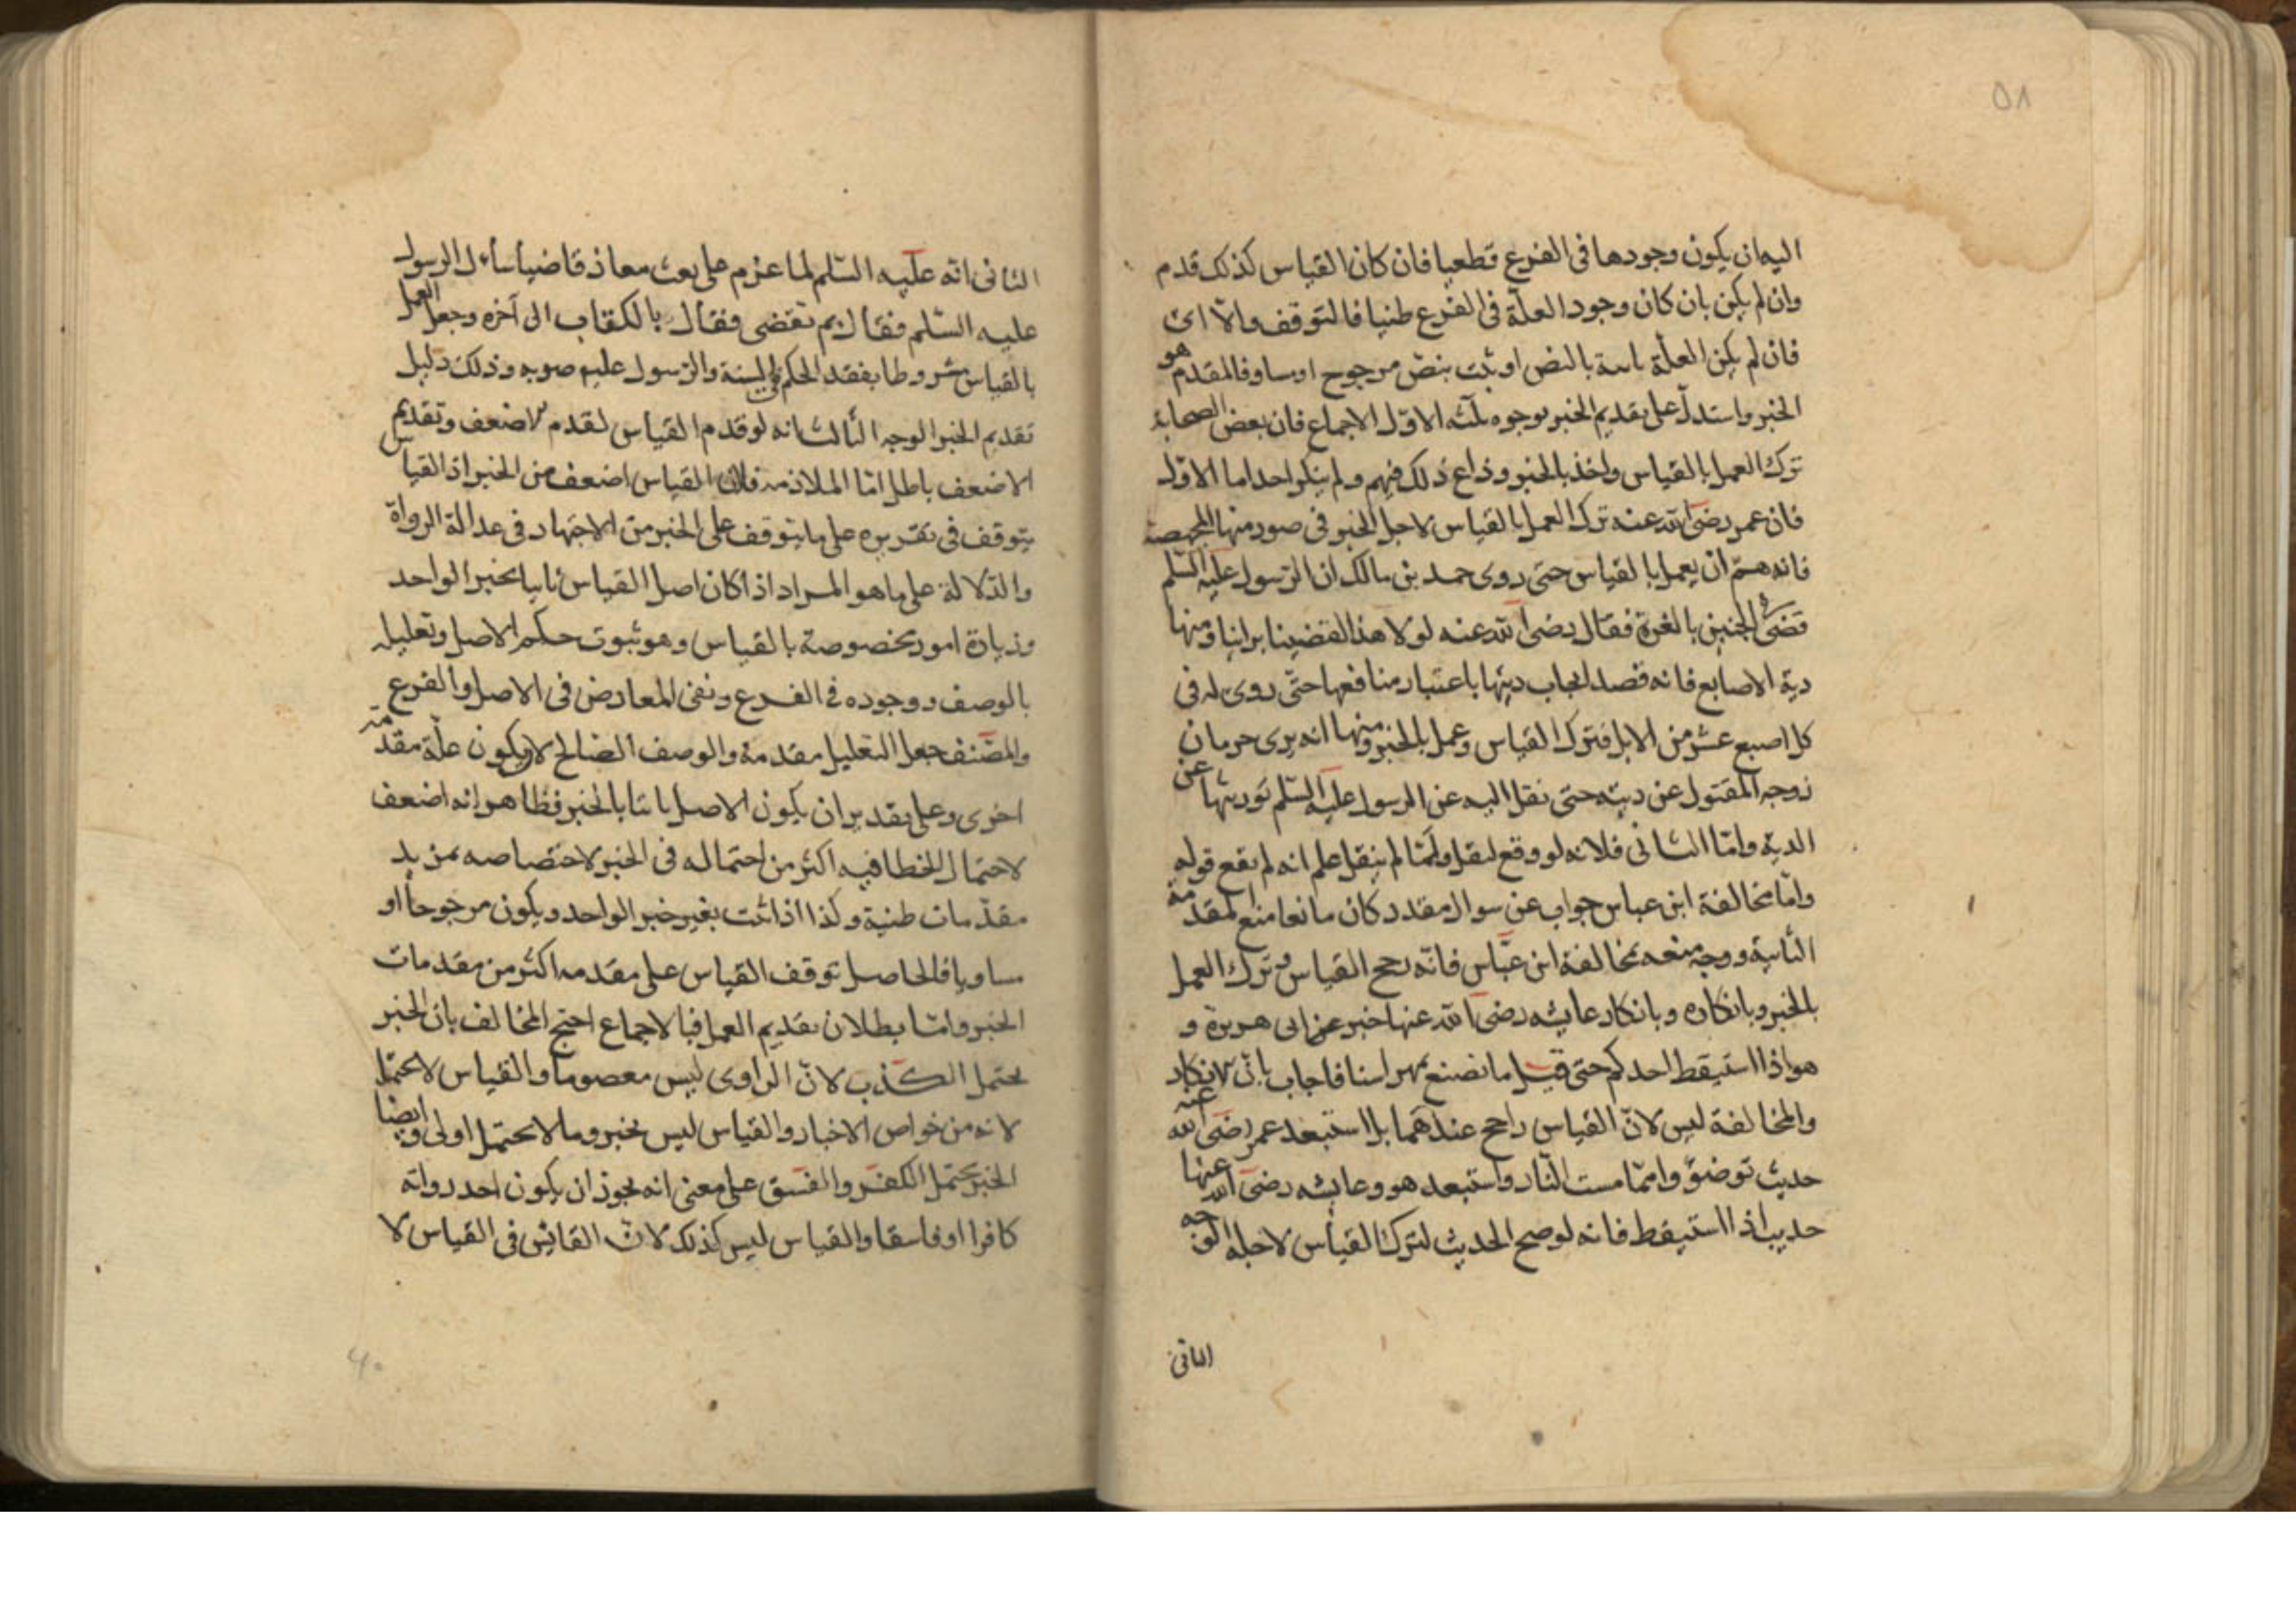 ٥٨
اليه ان يكون وجودها فى الفرع قطعيا فان كان القياس كذلك قدم
وان لم يكن بان كان وجود العلة فى الفرع ظنيا فالتوقف والا اى
فان لم يكن العلة ثابتة بالنص او ثبت بنص مرجوح او مساو فالمقدم هو
الخبر واستدل على تقديم الخبر بوجوه ثلثه الاول الاجماع فان بعض الصحابة
ترك العمل بالقياس واخذ بالخبر وذاع ذلك فيهم ولم ينكر احد اما الاول
فان عمر رضى الله عنه ترك العمل بالقياس لاجل الخبر فى صور منها
فانه هم ان يعمل بالقياس حتى روى حمد بن مالك ان الرسول عليه السلم
قضى فى الجنين بالغرة فقال رضى الله عنه لولا هذا لقضينا براينا ومنها
دية الاصابع فانه قصد ايجاب ديتها باعتبار منافعها حتى روى له فى
كل اصبع عشر من الابل فترك القياس وعمل بالخبر ومنها انه يرى حرمان
زوجه المقتول عن ديته حتى نقل اليه عن الرسول عليه السلم توريثها عن
الدية واما الثانى فلانه لو وقع لنقل ولما لم ينقل علم انه لم يقع قوله
واما مخالفة ابن عباس جواب عن سوال مقدر كان مانعا منع المقدمة
الثانية ووجه منعه مخالفة ابن عباس فانه رجح القياس وترك العمل
بالخبر وبانكاره وبانكار عايشه رضى الله عنها خبر عن ابى هريرة و
هو اذا استيقظ احدكم حتى قيل ما نصنع بمهراسنا فاجاب بان الانكار
والمخالفة ليس لان القياس راجح عندهما بل استبعد عمر رضى الله عنه
حديث توضؤ وا مما مست النار واستبعد هو وعايشه رضى الله عنها
حديث اذا استيقظ فانه لو صح الحديث لترك القياس لاجله الوجه
الثانى
الثانى انه عليه السلم لما عزم على بعث معاذ قاضيا ساءل الرسول
عليه السلم فقال بم تقضى فقال بالكتاب الى آخره وجعل العمل
بالقياس مشروطا بفقد الحكم فى السنة والرسول عليم صوبه وذلك دليل
تقديم الخبر الوجه الثالث انه لو قدم القياس لقدم الاضعف وتقديم
الاضعف باطل اما الملازمه فلان القياس اضعف من الخبر اذ القياس
يتوقف فى تقريره على ما يتوقف على الخبر من الاجتهاد فى عدالة الرواة
والدلالة على ما هو المراد اذا كان اصل القياس ثابتا بخبر الواحد
وزيادة امور مخصوصة بالقياس وهو ثبوت حكم الاصل وتعليله
بالوصف ووجوده فى الفرع ونفى المعارض فى الاصل والفرع
والمصنف جعل التعليل مقدمة والوصف الصالح لان يكون علة مقدمة
اخرى وعلى تقدير ان يكون الاصل ثابتا بالخبر فظاهر انه اضعف
لاحتمال الخطا فيه اكثر من احتماله فى الخبر لاختصاصه بمزيد
مقدمات ظنية وكذا اذا ثبت بغير خبر الواحد ويكون مرجوحا او
مساويا فالحاصل توقف القياس على مقدمه اكثر من مقدمات
الخبر واما بطلان تقديم العمل فبالاجماع احتج المخالف بان الخبر
يحتمل الكذب لان الراوى ليس معصوما والقياس لا يحتمل
لانه من خواص الاخبار والقياس ليس بخبر وما لا يحتمل اولى وايضا
الخبر يحتمل الكفر والفسق على معنى انه يجوز ان يكون احد رواته
كافرا او فاسقا والقياس ليس كذلك لان القائس فى القياس لا